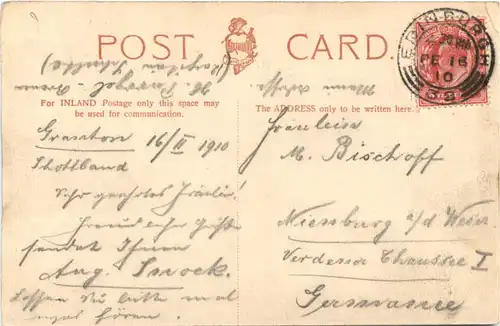 POST CARD.
For INLAND Postage only this space may
be used for communication.
The ADDRESS only to be written here.
EDINBURGH
FE 16
10
Granton 16/II 1910
Schottland
Sehr geehrtes Fräulein!
Freundliche Grüße
sendet Ihnen
Aug. Snock.
Lassen Sie bitte mal
was hören.
Fräulein
M. Bischoff
Nienburg a/d Weser
Verdener Chaussee I
Germanie